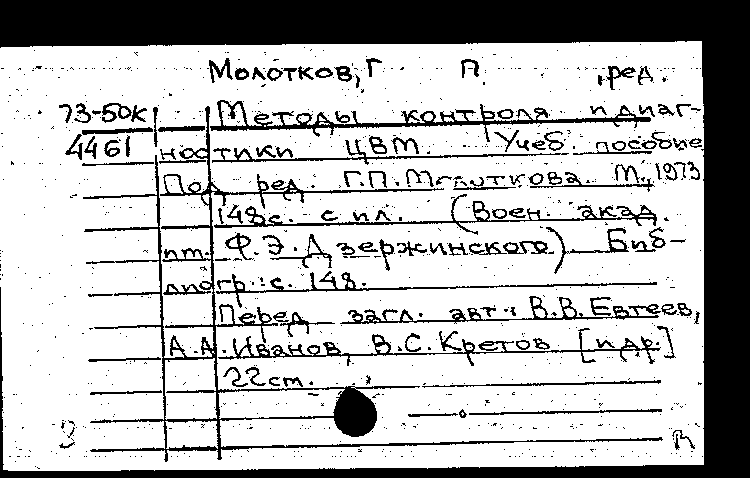 Молотков, Г П , ред.
73-50к Методы контроля и диаг-
4461 ностики ЦВМ. Учеб. пособие
Под ред. Г.П. Молоткова. М., 1973
148с. с ил. (Воен. акад.
им. Ф.Э. Дзержинского). Биб-
лиогр.: с. 148.
Перед загл. авт.: В.В. Евтеев,
А.А. Иванов, В.С. Кретов [и др.]
22см.